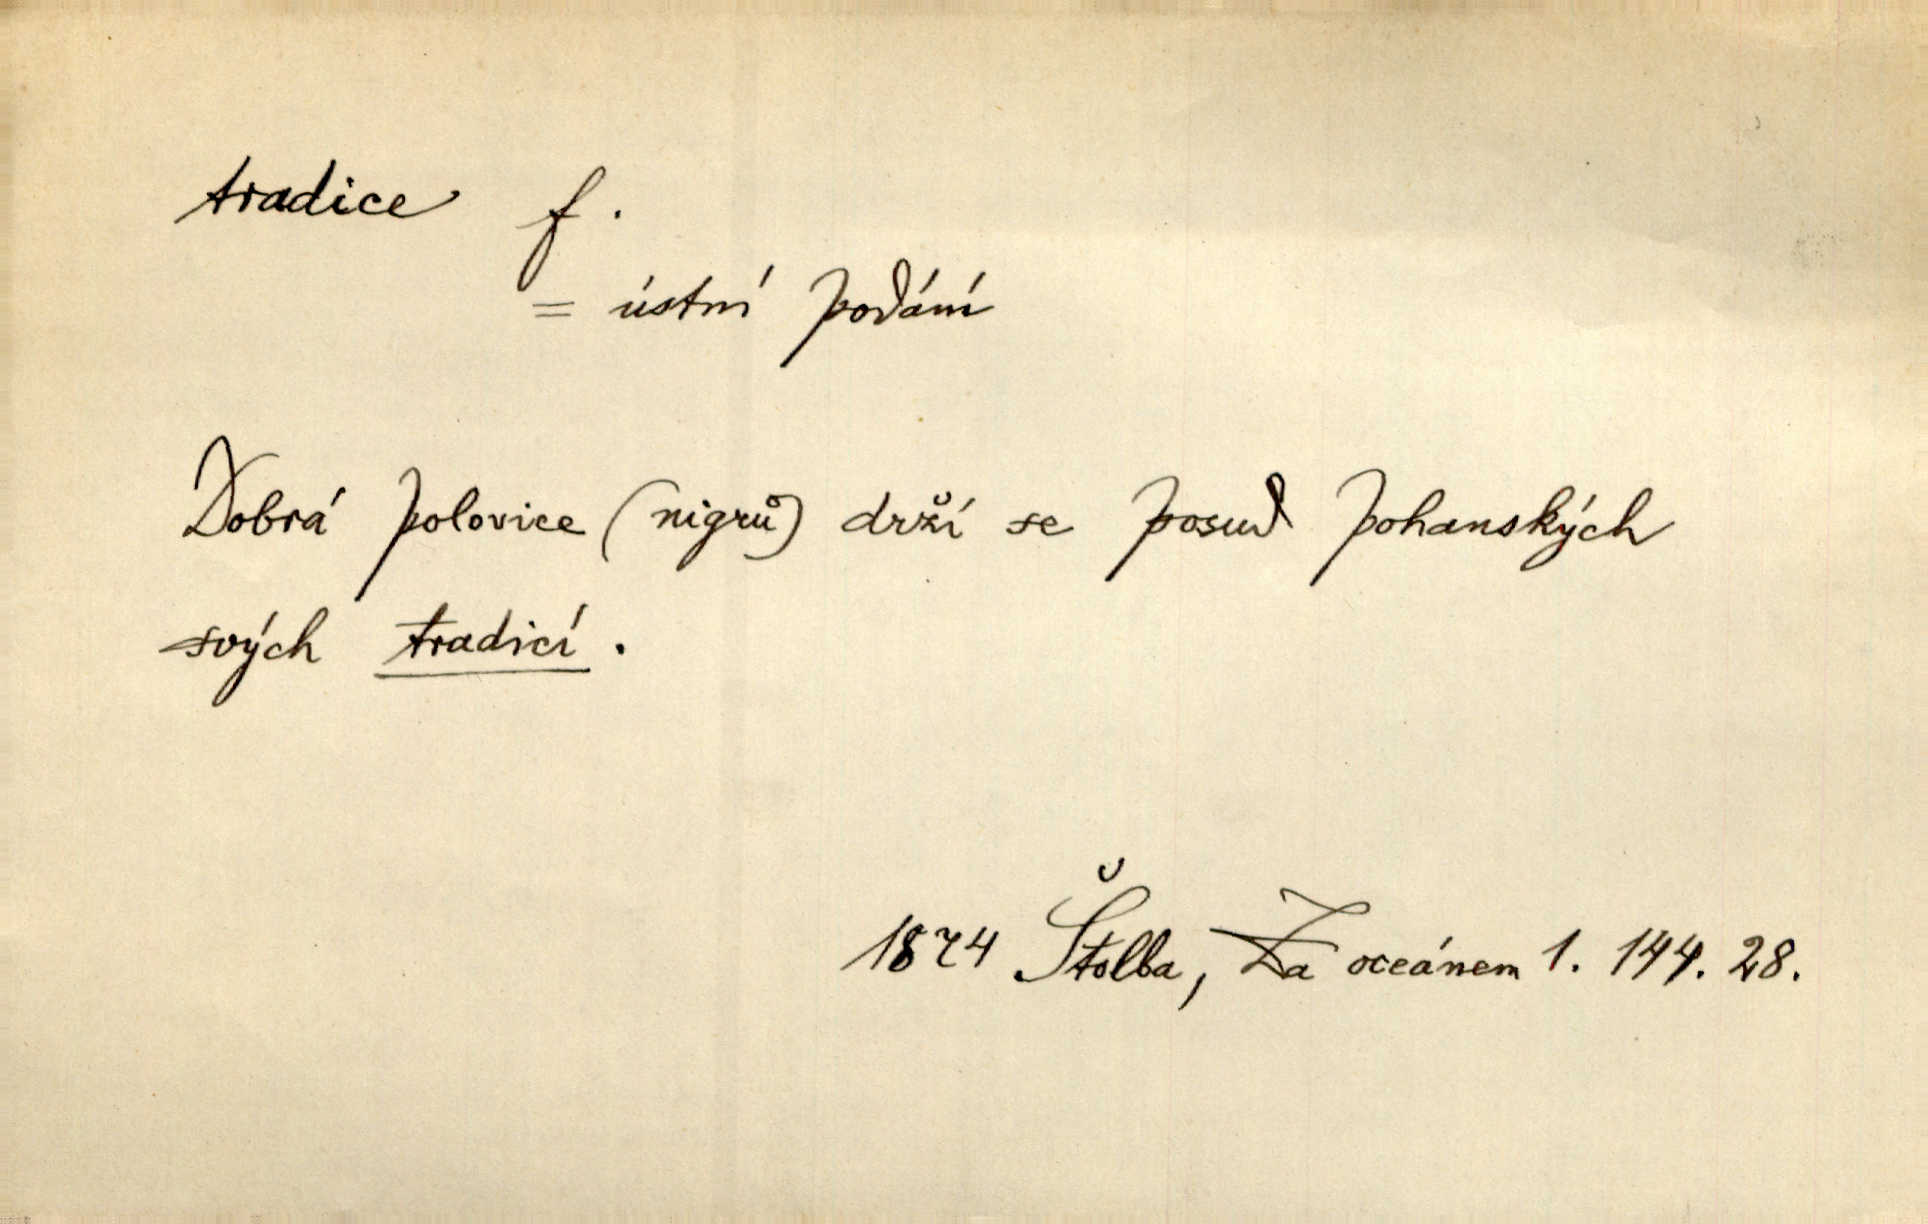 tradice f.
= ústní podání
Dobrá polovice (nigrů) drží se posud pohanských
svých tradicí.
1874 Štolba, Za oceánem 1. 144. 28.